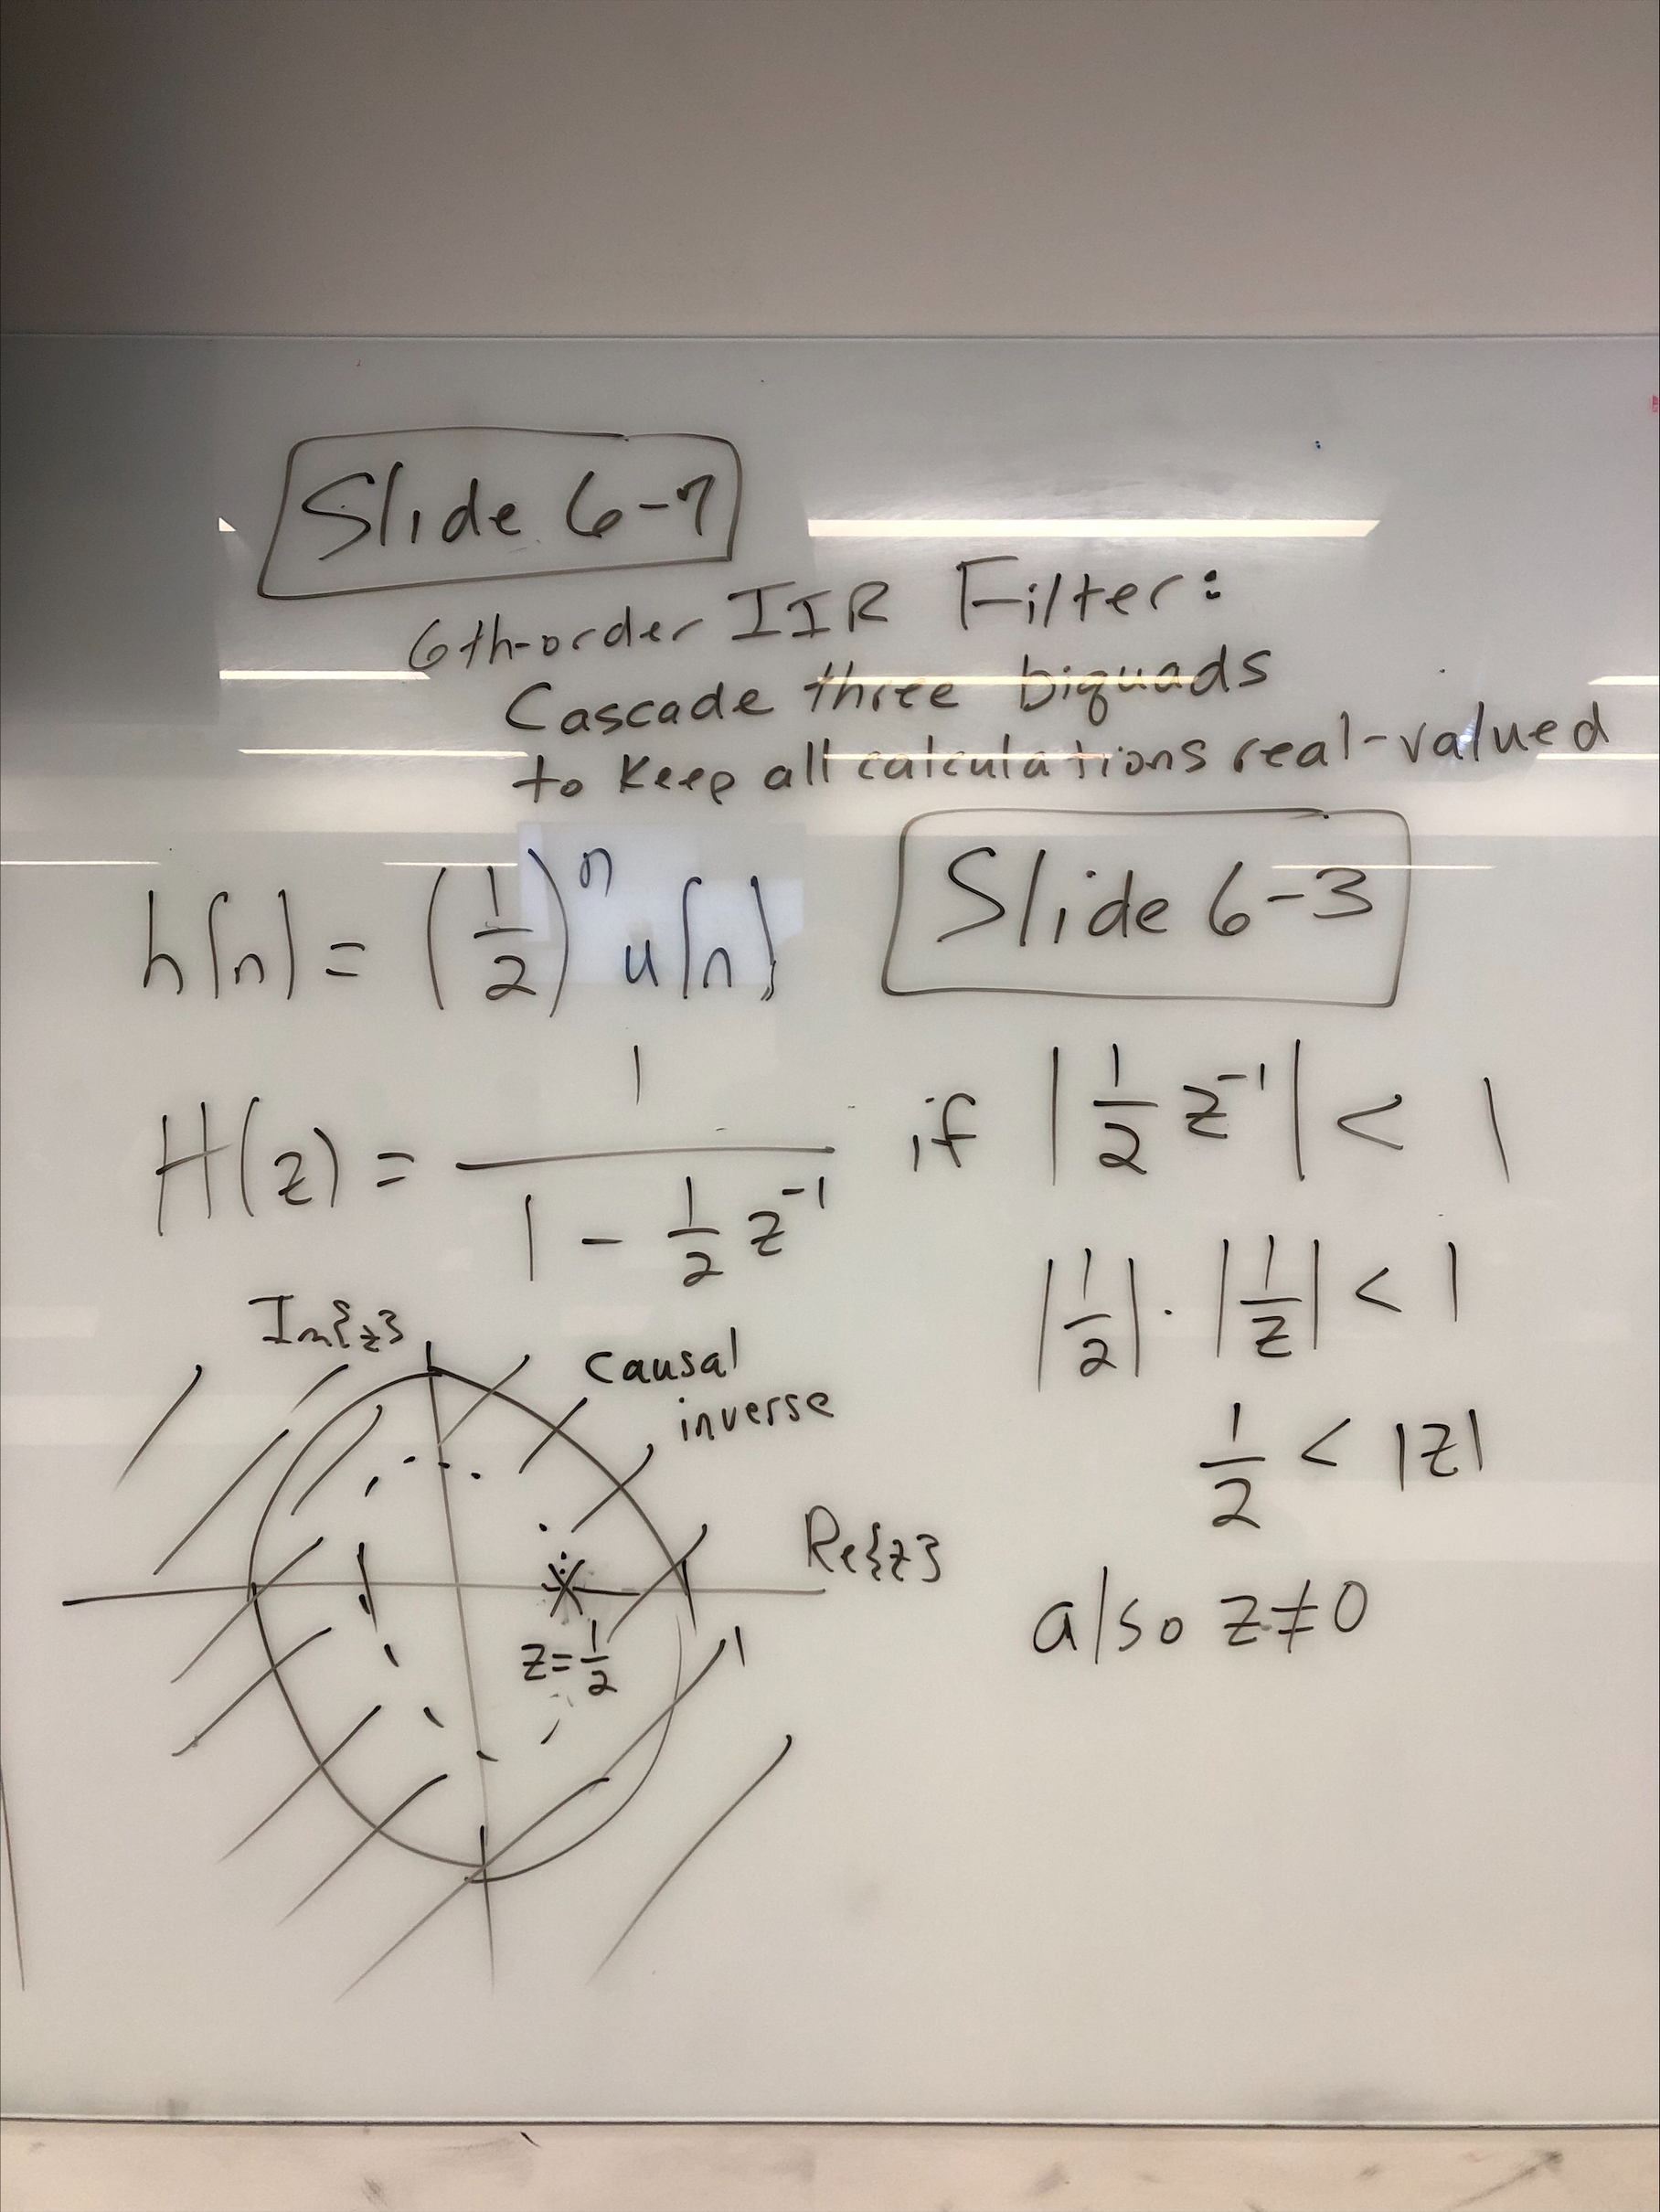 Slide 6-7
6th-order IIR Filter:
Cascade three biquads
to keep all calculations real-valued
h[n] = (1/2)^n u[n]
Slide 6-3
H(z) = 1 / (1 - 1/2 z^-1) if |1/2 z^-1| < 1
|1/2| · |1/z| < 1
1/2 < |z|
also z≠0
Im{z}
causal
inverse
Re{z}
z=1/2
1